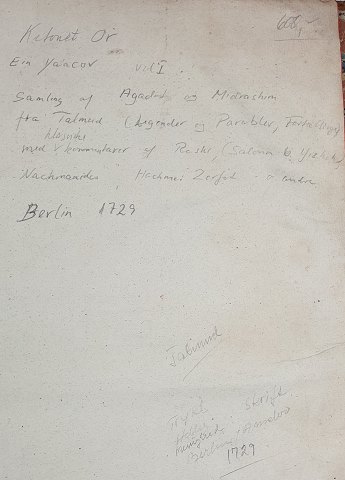 Kotonet Or
608,-
Ein Yaacov vol I
Samling af Agadoth og Midrashim
fra Talmud (Legender og Parabler,
klassiske
med kommentarer af Rashi, (Salomo b.
Nachmanides, Hachmei Zorfat o andre
Berlin 1729
Talmud
Trykt
skrift
Berlin
1729